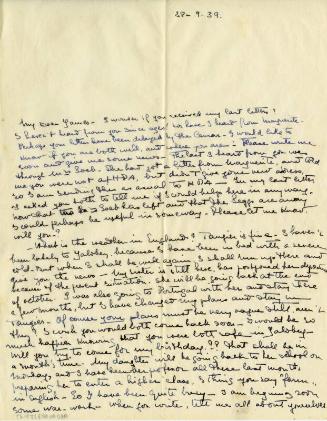 28-9-39.
My dear James - I wonder if you received my last letter?
I haven't heard from you since ages!
Perhaps your letters have been delayed by the Censor - I would like to
know if you are both well, and where you are! Please write me
soon and give me some news - The last I heard from you was
through Mr Loeb. She had got a letter from Marguerite, and told
me you were not at HDA, but didn't give your new address,
so I am sending this as usual to HDA - In my last letter
I asked you both to tell me if I could help here in any way,
now that Mrs Loeb has left and that the Leggs are away
I could perhaps be useful in some way. Please let me know
will you?
- What is the weather in England? Tangier is fine - I haven't
been lately to Jalobey, because I have been in bed with a severe
cold. But when I shall be up again I shall run up there and
give you the news - My sister is still here, has postponed her departure
because of the present situation - She will be going back at the end
of October. I was also going to Portugal with her and stay there
a few months, but I have changed my plans and stay in
Tangier. Of course your plans must be very vague still, aren't
they? I wish you would both come back soon - I would be so
much happier knowing that you were both safe in Jalobey -
will you try to come for my birthday?? That shall be in
a month's time - My daughter will be going back to her school on
Monday, and I have been her professor all these last months,
preparing her to enter a higher class.
in English - So I have been quite busy - I am beginning soon
some war-work - when you write, tell me all about yourselves